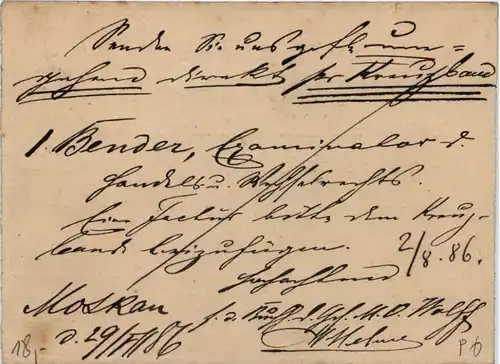 Senden Sie uns gefl. um=
gehend direkt per Kreuzband
1 Bender, Examinator d.
Handels u. Wechselrechts.
Eine Factur bitte dem Kreuz-
bande beizufügen.
2/8.86.
Hochachtend
Moskau f. d. Buchh. d. Ges. M. O. Wolff
d. 29/VII 86
18,- P D